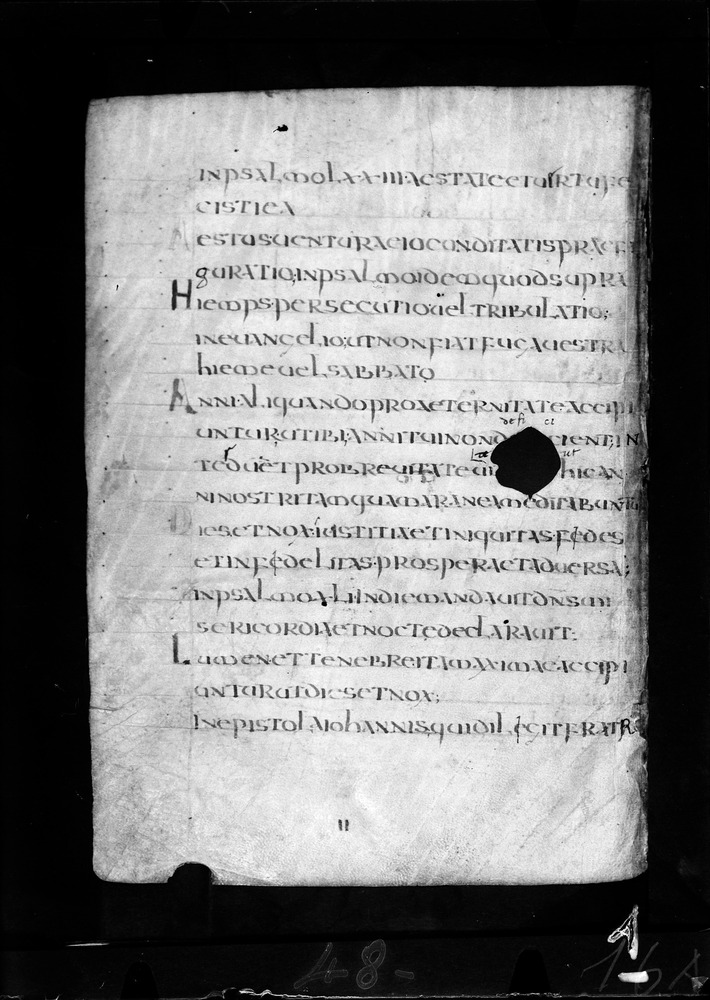 INPSALMOLXXIIIAESTATEETUIRTUFE
CISTIEA
AESTUSUENTURAEIOCONDITATISPRAEFI
gURATIO;INPSALMOIDEMQUODSUPRA
HIEMPS·PERSECUTIOUEL TRIBULATIO;
INEUANGELIO;UTNONFIATFUGAUESTRA
hIEMEUELSABBATO
ANNI·ALIQUANDOPROAETERNITATEACCIPI
defi ci
UNTURUTIBI;ANNITUINOND CIENT;IN
TEDUETPROBREUITATEUI hICAN
ut
NINOSTRITAMQUAMARANEAMEDITABUNTU
DIESETNOX·IUSTITIAETINIQUITAS·FEDES
ETINFEDELITAS·PROSPERAETADUERSA;
INPSALMOXLI·INDIEMANDAUITDNSMI
SERICORDIAETNOCTEDECLARAUIT:
LUMENETTENEBREITAMAXIMAEACCIPI
UNTURUTDIESETNOX;
INEPISTOLAIOhANNISQUIDILECITFRATR
II
48-